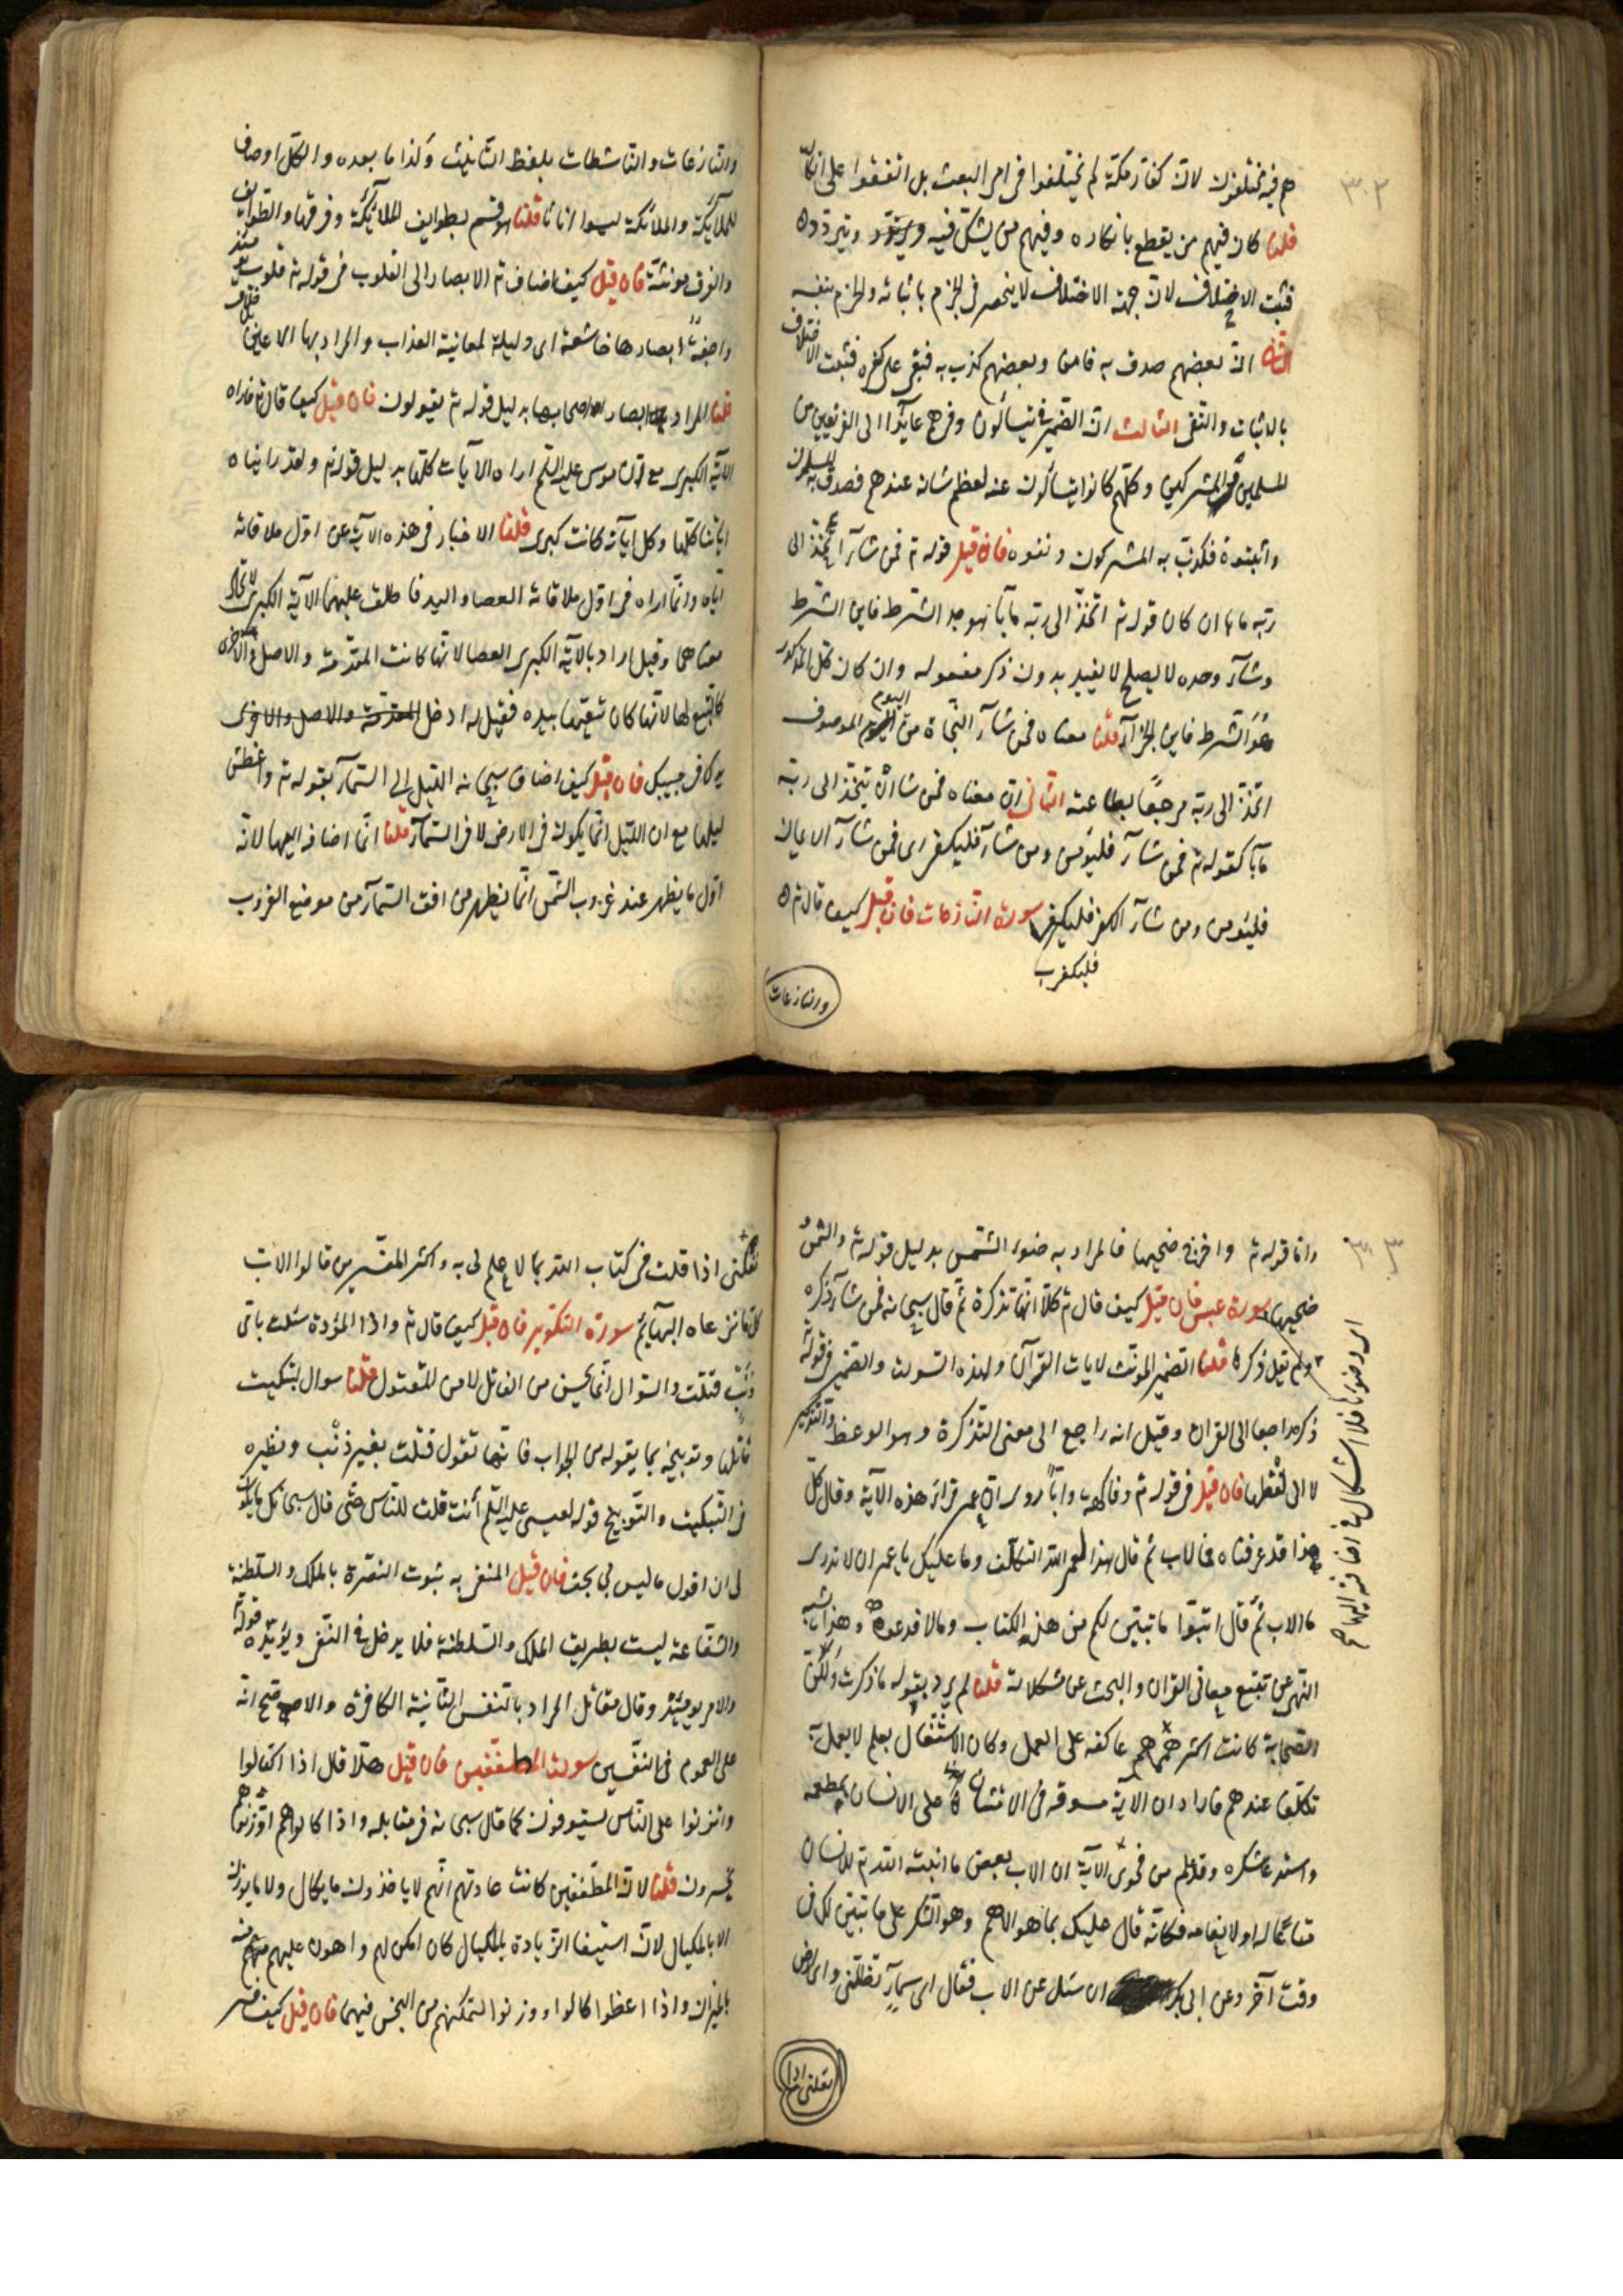 ٣٠٢
هم فيه مختلفون لان كفار مكة لم يختلفوا فى امر البعث بل اتفقوا على انكاره
قلنا كان فيهم من يقطع بانكاره وفيهم من يشك فيه ويتردد
فثبت الاختلاف لان جهة الاختلاف لا ينحصر فى الجزم باثباته والجزم بنفيه
ان بعضهم صدق به فامن وبعضهم كذب به فبقى على كفره فثبت الاختلاف
بالاثبات والنفى الثالث ان الضمير فى يتسألون وفى هم عائدا الى الفريقين من
المسلمين والمشركين وكلهم كانوا يتسألون عنه لعظم شانه عندهم فصدق به المسلمون
واثبتوه فكذب به المشركون ونفوه فان قيل قوله تع فمن شآء اتخذ الى
ربه مابا ان كان قوله تع اتخذ الى ربه مآبا هو جد الشرط فاين الشرط
وشآء وحده لا يصلح لا يفيد بدون ذكر مفعوله وان كان كل المذكور
هو الشرط فاين الجزآء قلنا معناه فمن شآء النجاة من اليوم الموصوف
اتخذ الى ربه مرجعا بطاعته الثانى ان معناه فمن شا ان يتخذ الى ربه
مآبا كقوله تع فمن شآء فليؤمن ومن شآء فليكفر اى فمن شآء الايمان
فليؤمن ومن شآء الكفر فليكفر سورة النازعات فان قيل كيف قال تع
فليكفر
والنازعات
والنازعات والناشطات بلفظ التانيث وكذا ما بعده والكل اوصاف
للملآئكة والملآئكة ليسوا اناثا قلنا هو قسم بطوايف الملآئكة وفرقها والطوايف
والفرق مونثة فان قيل كيف اضاف تع الابصار الى القلوب فى قوله تع قلوب يومئذ
واجفة ابصارها خاشعة اى ذليلة لمعاينة العذاب والمراد بها الاعين
قلنا المراد ابصار اصحابها بدليل قوله تع يقولون فان قيل كيف قال تع فاراه
الآية الكبرى مع ان موسى عليه السلم اراه الآيات كلها بدليل قوله تع ولقد اريناه
اياتنا كلها وكل اية كانت كبرى قلنا الاخبار فى هذه الآية عن اول ملاقاته
اياه وانما اراه فى اول ملاقاته العصا واليد فاطلق عليهما الآية الكبرى لاتحاد
معناهما وقيل اراد بالآية الكبرى العصا لانها كانت المقدمة والاصل والاخرى
كالتبع لها لانها كان يتبعها بيده فقيل له ادخل المقدمة والاصل والاخرى
يدك فى جيبك فان قيل كيف اضاف سبحانه الليل الى السمآء بقوله تع واغطش
ليلها مع ان الليل انما يكون فى الارض لا فى السمآء قلنا انما اضافه اليها لانه
اول ما يظهر عند غروب الشمس انما يظهر من افق السمآء من موضع الغروب
٣٠٣
واما قوله تع واخرج ضحيها فالمراد به ضوء الشمس بدليل قوله تع والشمس
ضحيها سورة عبس فان قيل كيف قال تع كلا انها تذكرة ثم قال سبحانه فمن شآء ذكره
ولم يقل ذكرها قلنا الضمير المونث لايات القرآن ولهذه السورة والضمير فى قوله تع
ذكره راجعا الى القران وقيل انه راجع الى معنى التذكرة وهو الوعظ والتذكير
لا الى لفظها فان قيل فى قوله تع وفاكهة وابا روى ان عمر قرأ هذه الآية وقال كل
هذا قد عرفناه فما الاب ثم قال هذا لعمر الله التكلف وما عليك يا عمر ان لا تدرى
ما الاب ثم قال اتبعوا ما تبين لكم من هذا الكتاب وما لا فدعوه وهذا يشبه
النهى عن تتبع معانى القران والبحث عن مشكلاته قلنا لم يرد بقوله ما ذكرت ولكن
الصحابة كانت اكثر همهم عاكفه على العمل وكان الاشتغال بعلم لا يعمل به
تكلفا عندهم فاراد ان الآية مسوقه فى الامتنان على الانسان بمطعمه
واستدعا شكره وقد علم من فحوى الآية ان الاب بعض ما انبته الله تع للانسان
متاعا له او لانعامه فكانه قال عليك بما هو الاهم وهو الشكر على ما تبين لك فى
وقت آخر وعن ابى بكر ان سئل عن الاب فقال اى سمآء تظلنى واى ارض
اى وضوءها فلا اشكال فى اضافته اليها
تقلنى اذا
تقلنى اذا قلت فى كتاب الله بما لا علم لى به واكثر المفسرين قالوا الاب
كل ما ترعاه البهآئم سورة التكوير فان قيل كيف قال تع واذا الموؤدة سئلت باى
ذنب قتلت والسوال انما يحسن من القاتل لا من المقتول قلنا سوال لتبكيت
قاتلها وتوبيخه بما يقوله من الجواب فانها تقول قتلت بغير ذنب ونظيره
فى التبكيت والتوبيخ قوله لعيسى عليه السلم أنت قلت للناس حتى قال سبحانك ما يكون
لى ان اقول ما ليس لى بحق فان قيل المنفى به ثبوت النصرة بالملك والسلطنة
والشفاعة ليست بطريق الملك والسلطنة فلا يدخل فى النفى ويؤيده قوله تع
والامر يومئذ وقال مقاتل المراد بالنفس الثانية الكافرة والاصح انه
على العموم فى النفسين سورة المطففين فان قيل هلا قال اذا اكتالوا
واتزنوا على الناس يستوفون كما قال سبحانه فى مقابله واذا كالوهم او وزنوهم
يخسرون قلنا لان المطففين كانت عادتهم انهم لا ياخذون ما يكال ولا ما يوزن
الا بالمكيال لان استيفا الزيادة بالمكيال كان امكن لهم واهون عليهم منه
بالميزان واذا اعطوا كالوا ووزنوا لتمكنهم من البخس فيهما فان قيل كيف فسر